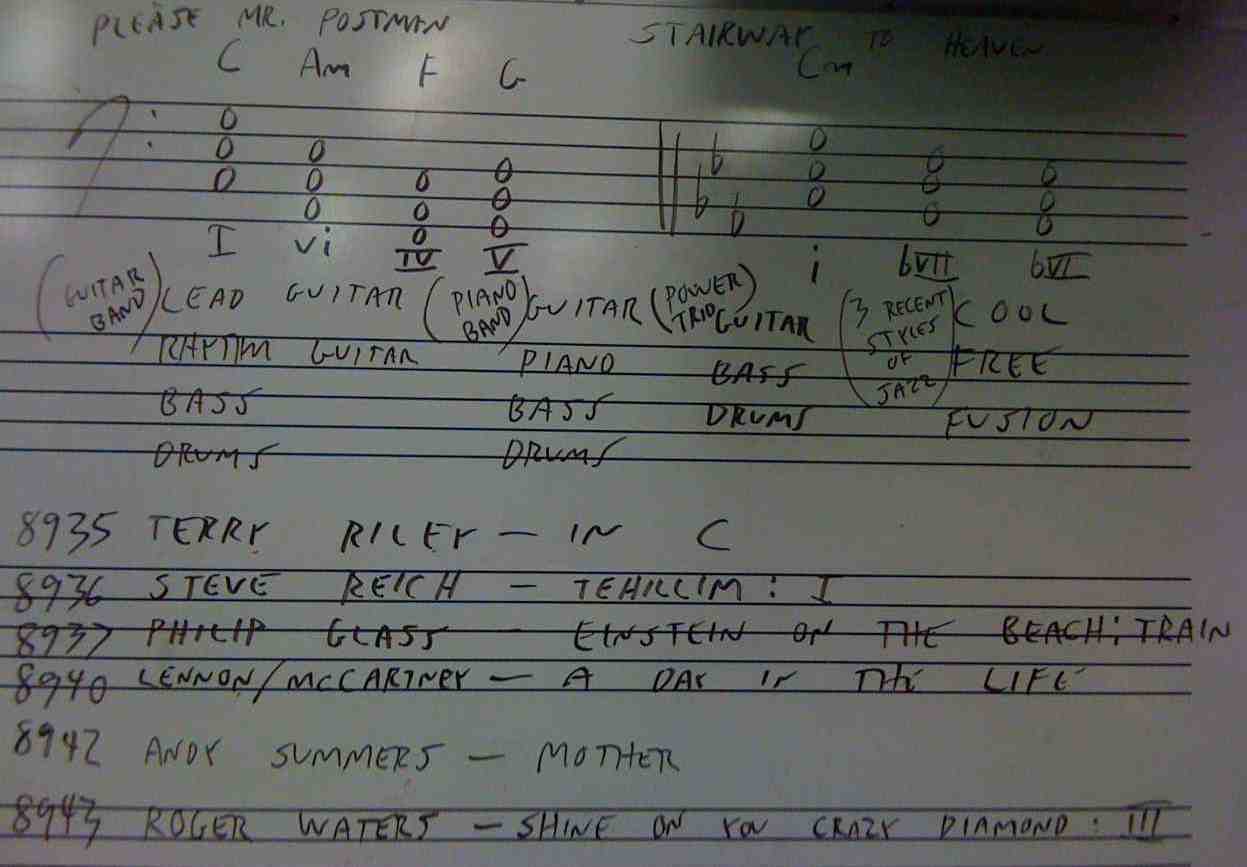 PLEASE MR. POSTMAN STAIRWAY TO HEAVEN
C Am F G Cm
I vi IV V i bVII bVI
(GUITAR BAND) LEAD GUITAR (PIANO BAND) GUITAR (POWER TRIO) GUITAR (3 RECENT STYLES OF JAZZ) COOL
RHYTHM GUITAR PIANO BASS FREE
BASS BASS DRUMS FUSION
DRUMS DRUMS
8935 TERRY RILEY — IN C
8936 STEVE REICH — TEHILLIM: I
8937 PHILIP GLASS — EINSTEIN ON THE BEACH: TRAIN
8940 LENNON/McCARTNEY — A DAY IN THE LIFE
8942 ANDY SUMMERS — MOTHER
8943 ROGER WATERS — SHINE ON YOU CRAZY DIAMOND: III